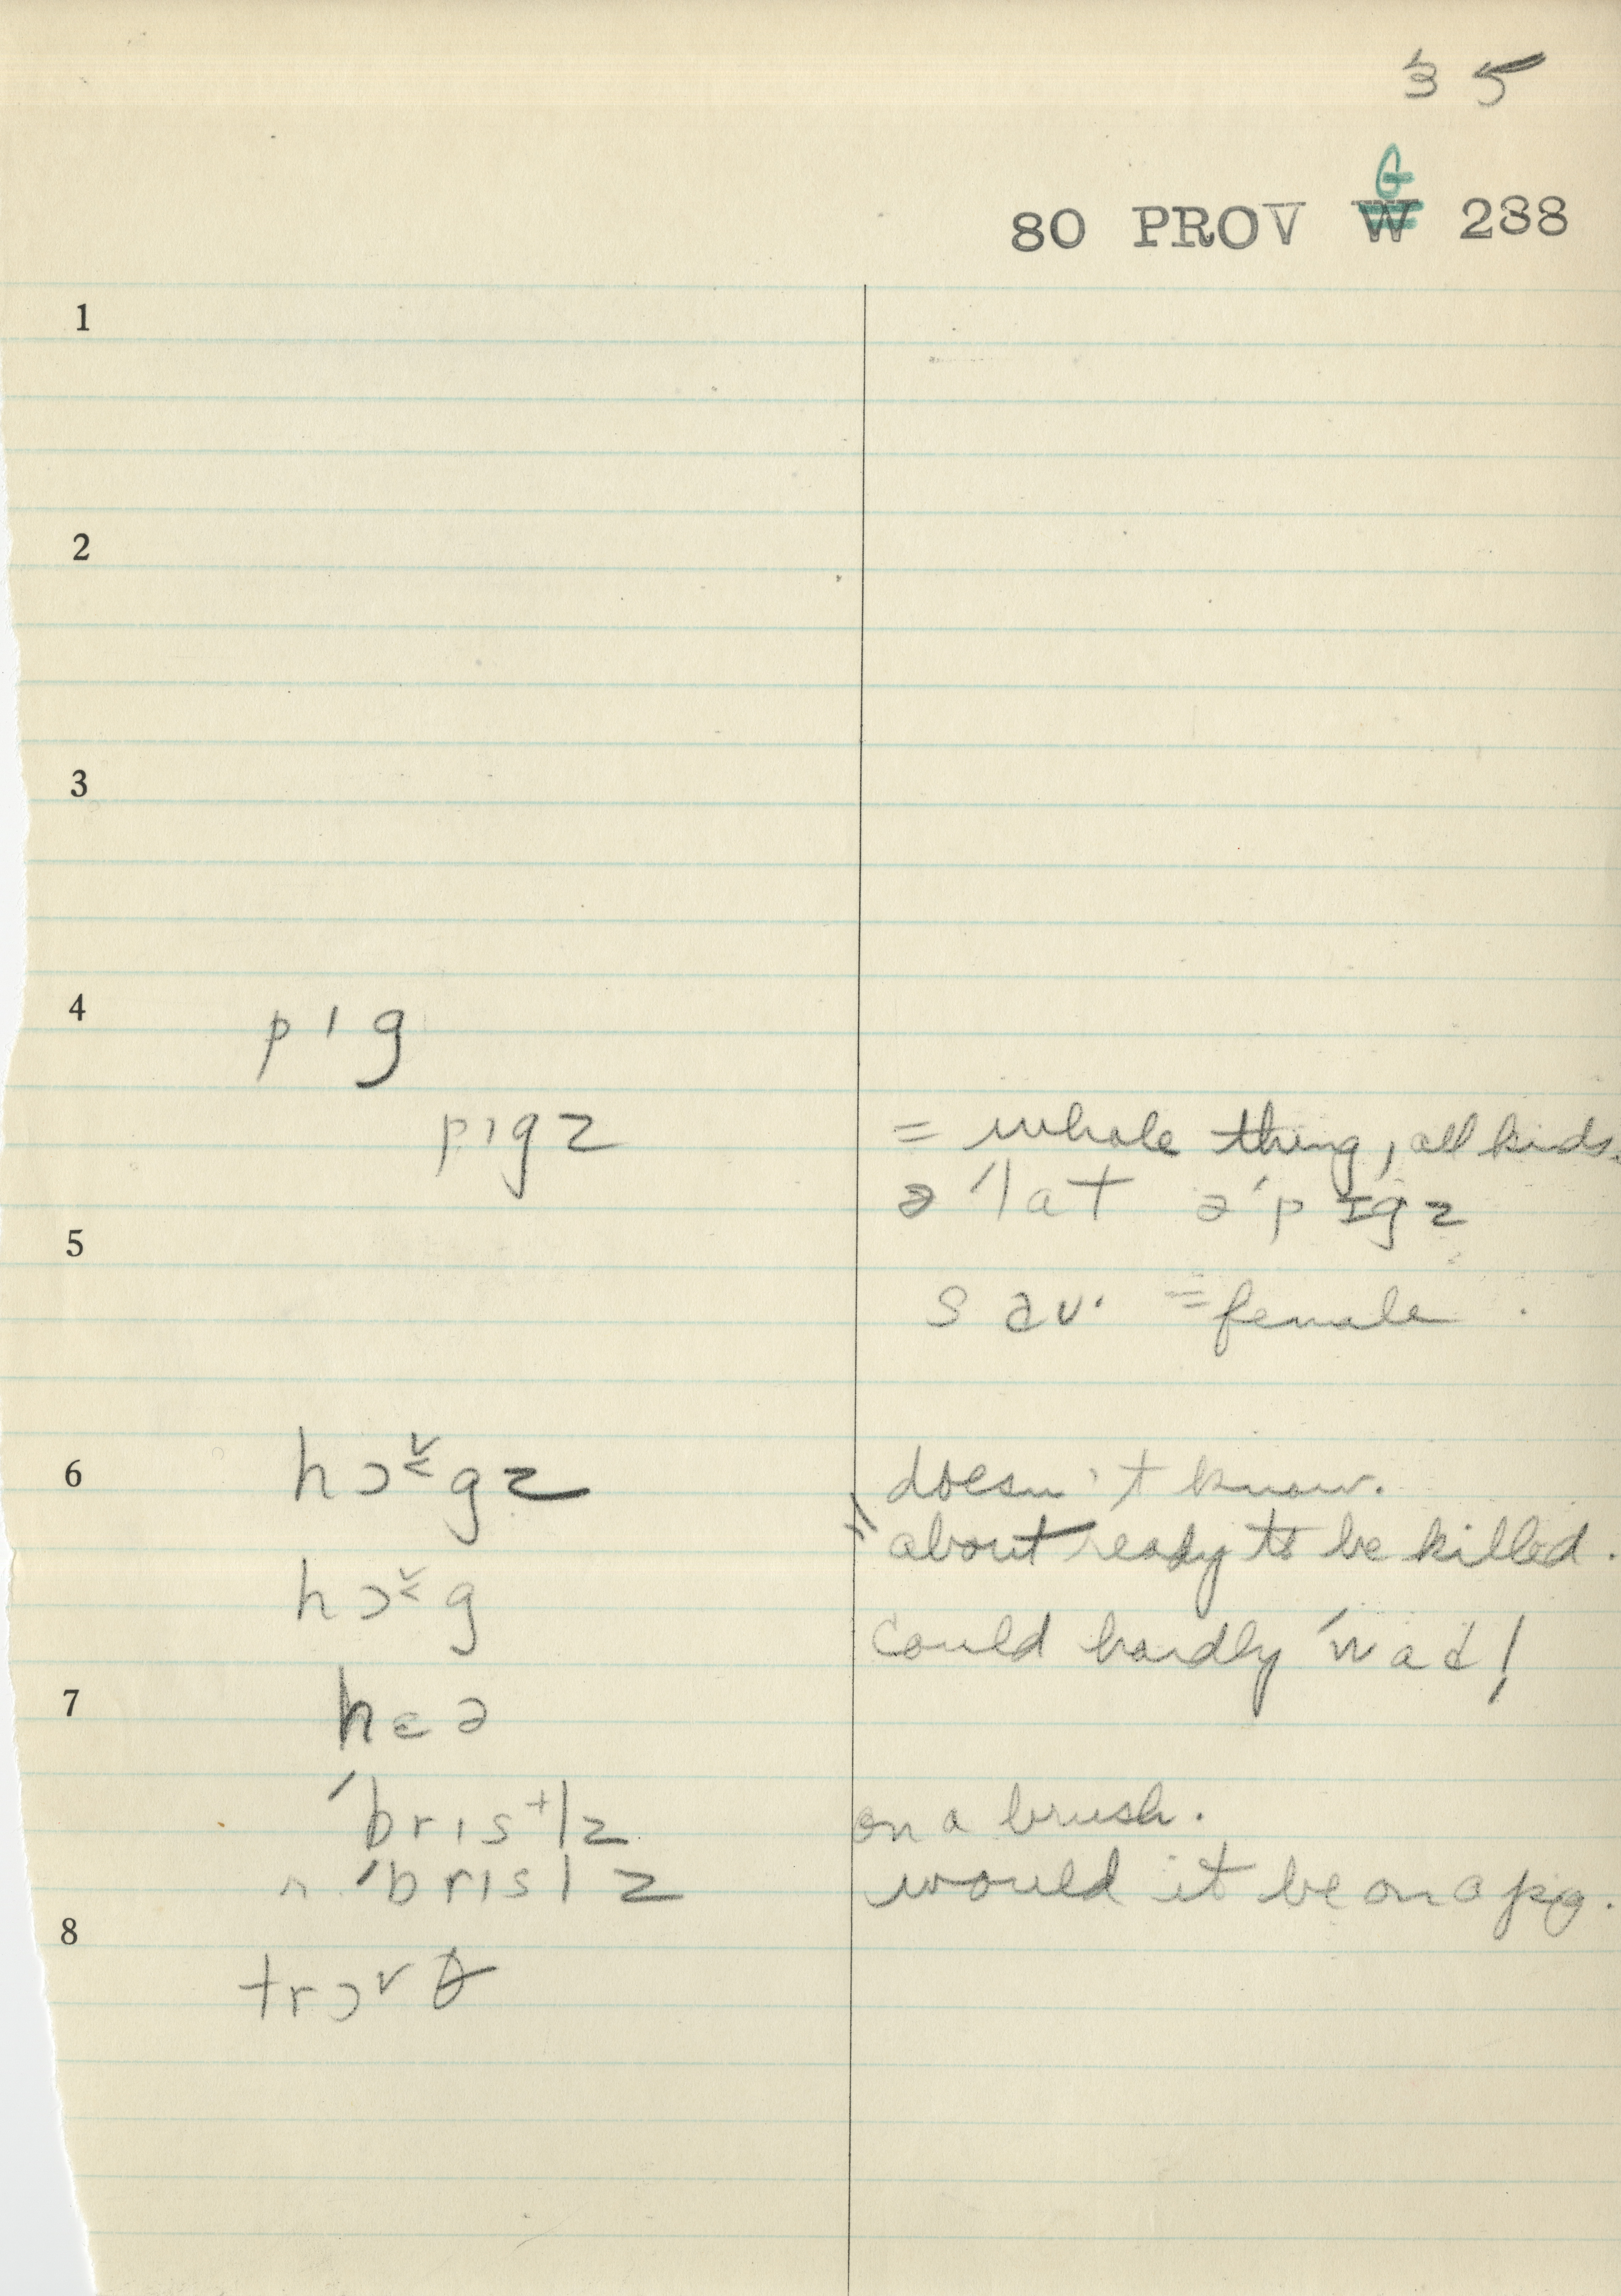 35
G
80 PROV W 288
1
2
3
4 pɪg
pɪgz = whole thing, all kids.
ə ˈlat ə ˈpɪgz
5
s aʊ· = female
6 hɔ˅gz doesn't know.
" about ready to be killed.
hɔ˅g
could hardly ˈwad!
7 hɛə
ˈbrɪstlz on a brush.
n. ˈbrɪslz would it be on a pig.
8
trɔ˅θ